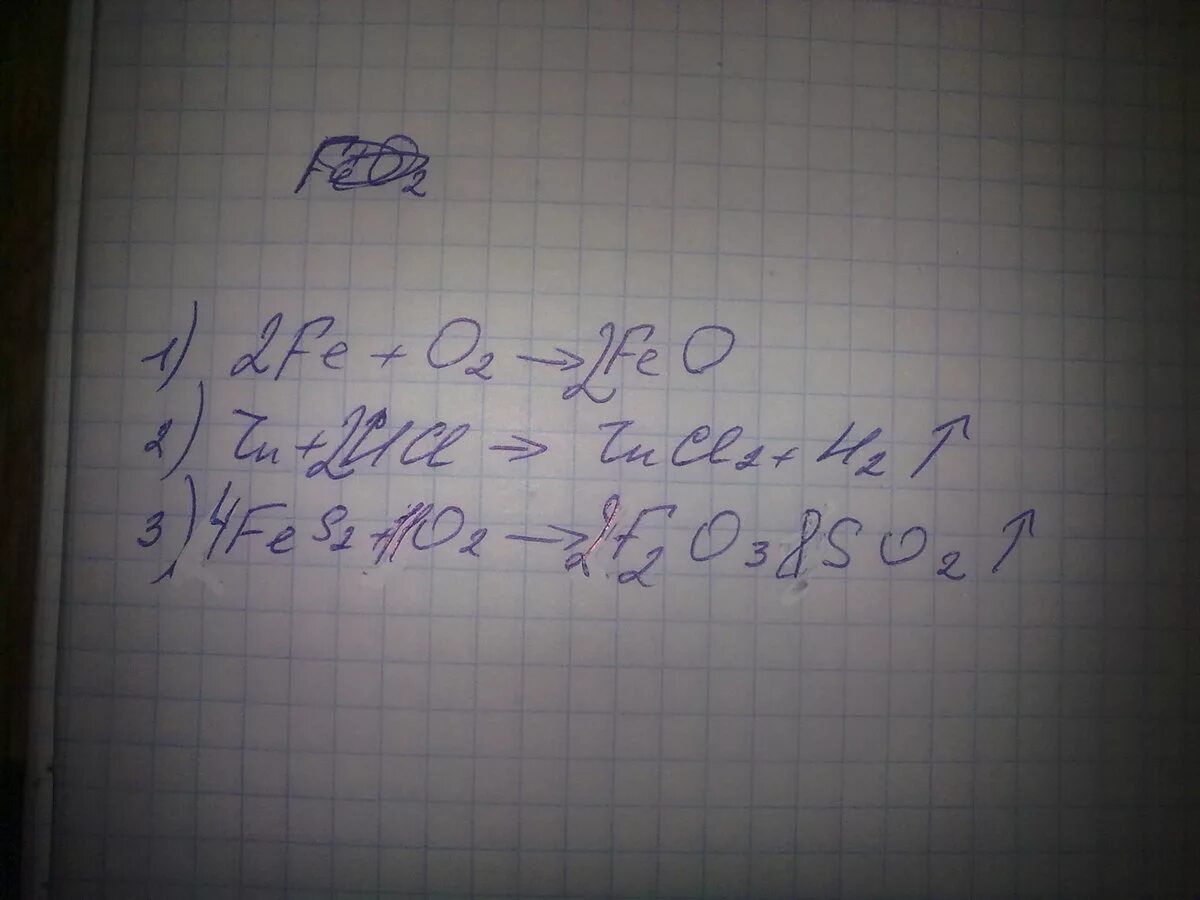 FeO₂
1) 2Fe + O₂ → 2FeO
2) Zn + 2HCl → ZnCl₂ + H₂ ↑
3) 4FeS₂ + 11O₂ → 2F₂O₃ 8SO₂ ↑